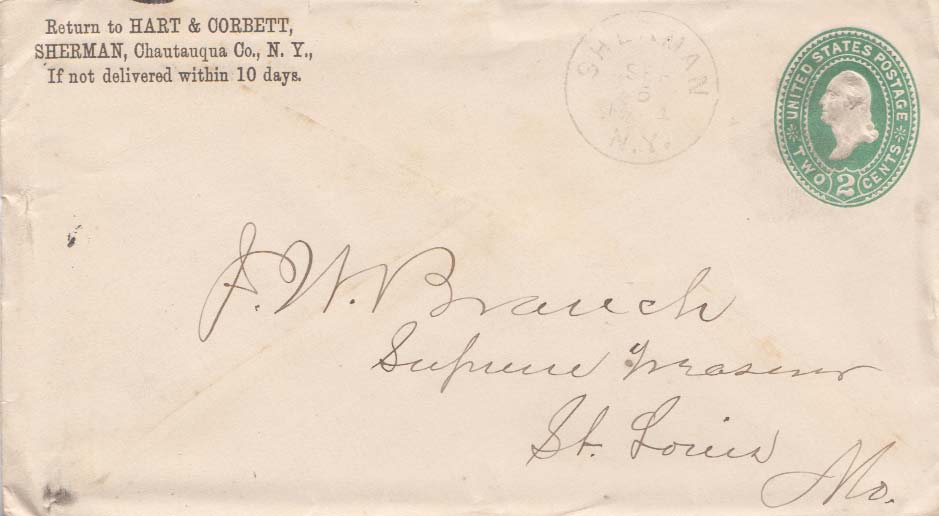 Return to HART & CORBETT,
SHERMAN, Chautauqua Co., N. Y.,
If not delivered within 10 days.
SHERMAN
SEP
6
N.Y.
UNITED STATES POSTAGE
TWO 2 CENTS
J. W. Branch
Supreme Treasurer
St. Louis
Mo.